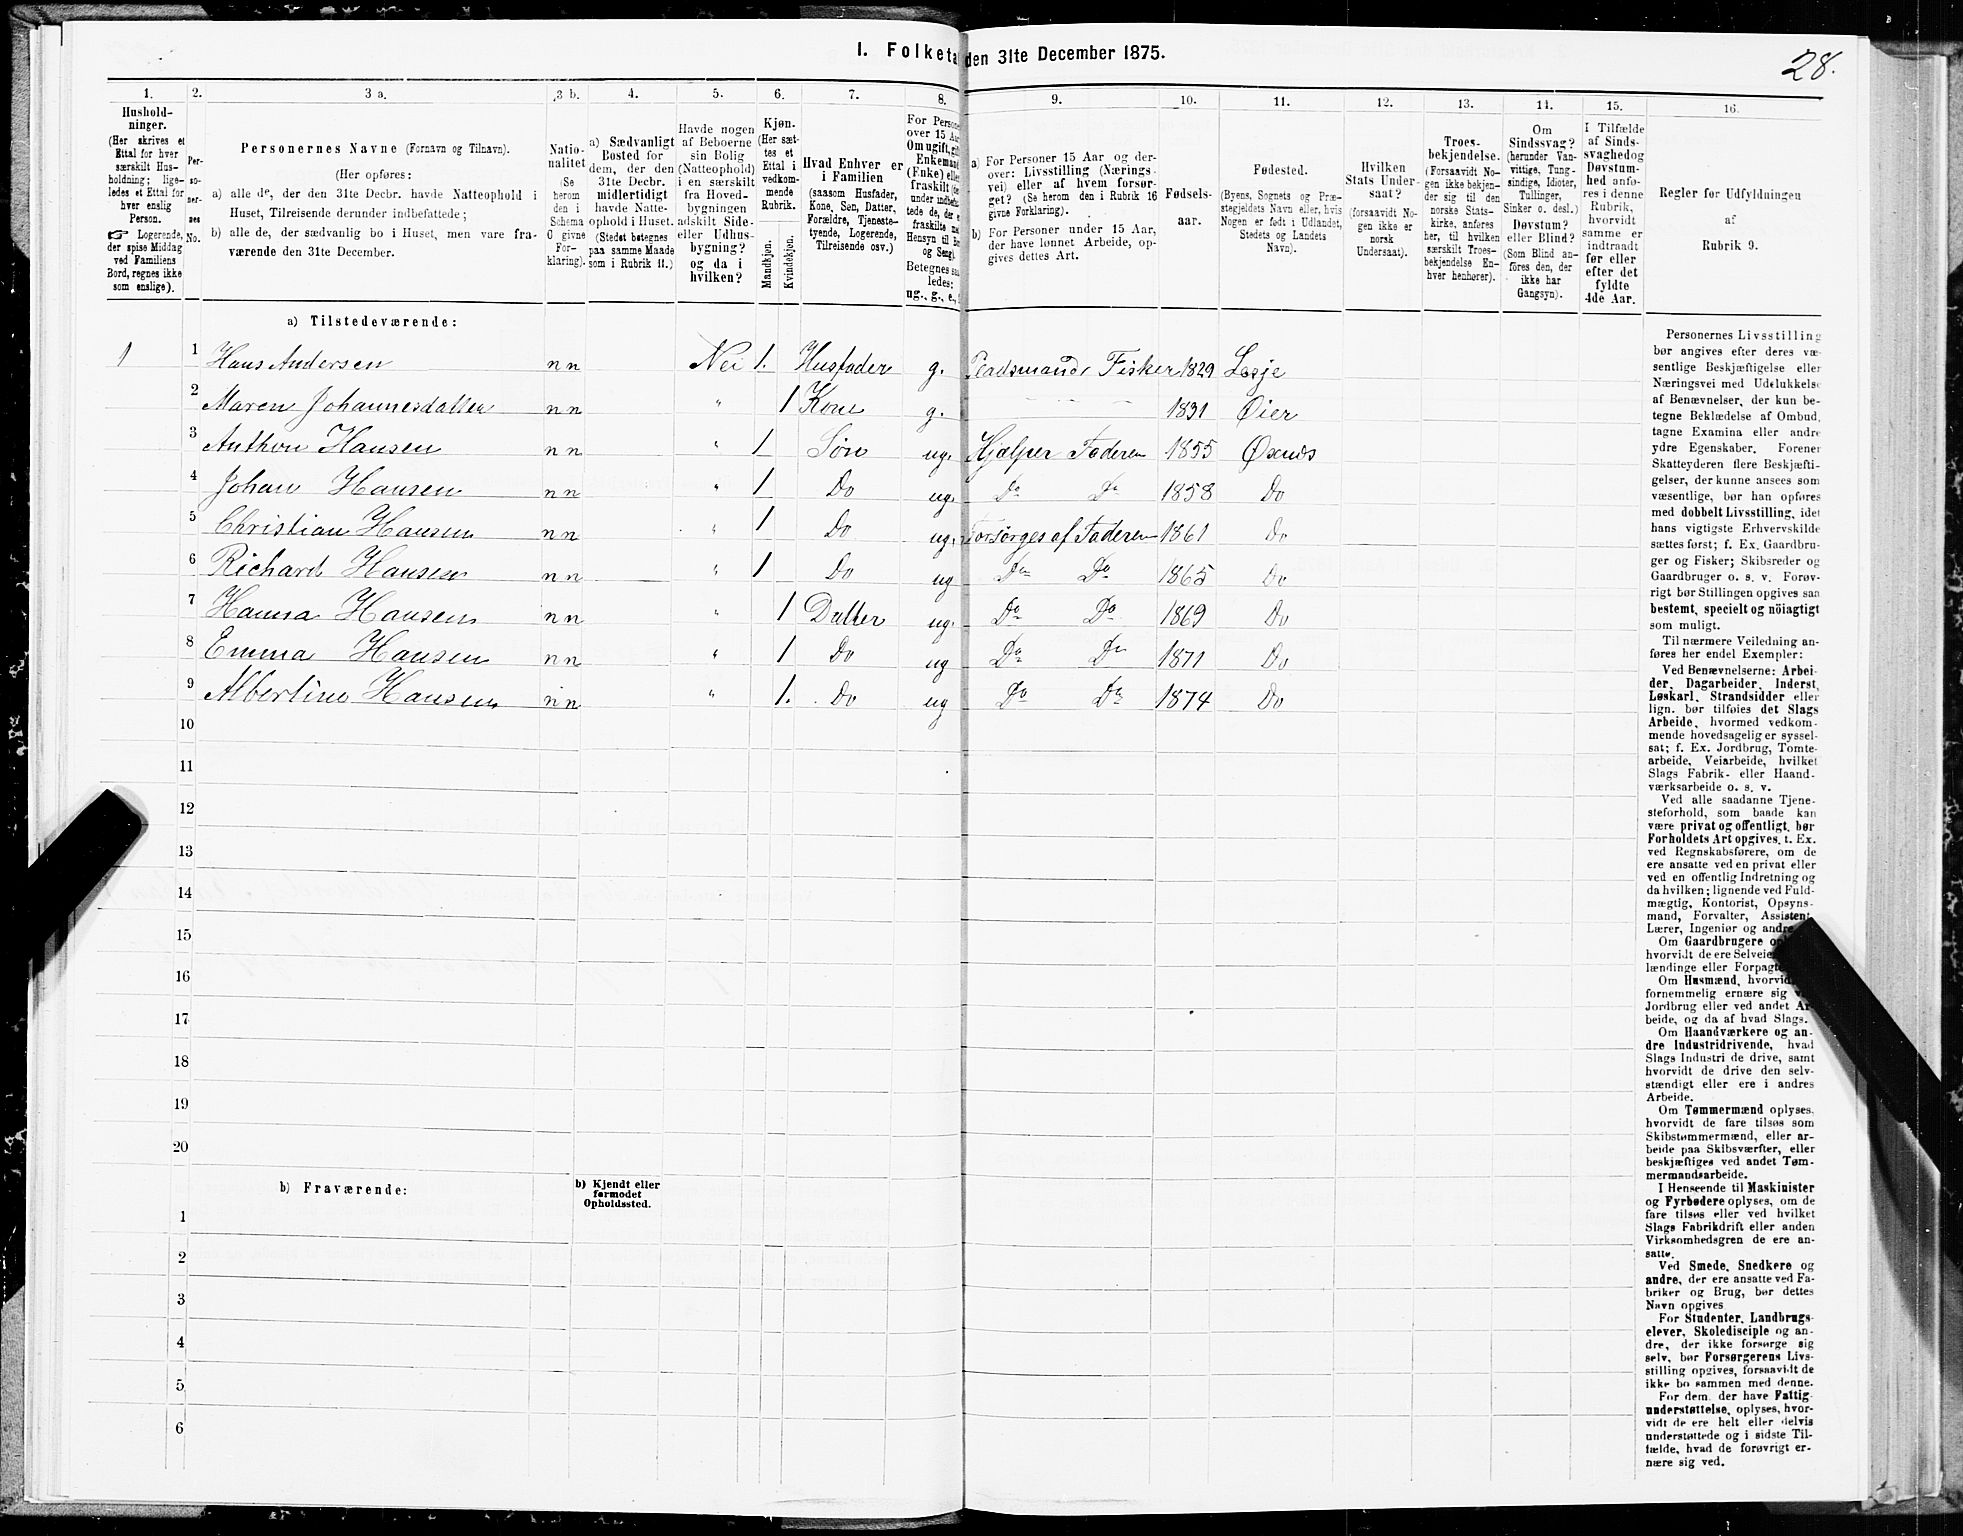 I. Folketæ den 31te December 1875.
28.
1. 2. 3 a. 3 b. 4. 5. 6. 7. 8. 9. 10. 11. 12. 13. 14. 15. 16.
Hushold-
ninger.
(Her skrives et
Ettal for hver
særskilt Hus-
holdning; lige-
ledes et Ettal for
hver enslig
Person.
☞ Logerende,
der spise Middag
ved Familiens
Bord, regnes ikke
som enslige).
Per-
so-
ner-
nes
No.
Personernes Navne (Fornavn og Tilnavn).
(Her opføres:
a) alle de, der den 31te Decbr. havde Natteophold i
Huset, Tilreisende derunder indbefattede;
b) alle de, der sædvanlig bo i Huset, men vare fra-
værende den 31te December.
Natio-
nalitet
(Se
herom
den i
Schema
O givne
For-
klaring).
a) Sædvanligt
Bosted for
dem, der den
31te Decbr.
midlertidigt
havde Natte-
ophold i Huset.
(Stedet betegnes
paa samme Maade
som i Rubrik 11.)
Havde nogen
af Beboerne
sin Bolig
(Natteophold)
i en særskilt
fra Hoved-
bygningen
adskilt Side-
eller Udhus-
bygning?
og da i
hvilken?
Kjøn.
(Her sæt-
tes et
Ettal i
vedkom-
mende
Rubrik.
Mandkjøn.
Kvindekjøn.
Hvad Enhver er
i Familien
(saasom Husfader,
Kone, Søn, Datter,
Forældre, Tjeneste-
tyende, Logerende,
Tilreisende osv.)
For Persone
over 15 Aa
Om ugift, gif
Enkemand
(Enke) elle
fraskilt (de
under indbefat
tede de, der e
fraskilte me
Hensyn til Bo
og Seng).
Betegnes saa
ledes:
ug., g., e.,
a) For Personer 15 Aar og der-
over: Livsstilling (Nærings-
vei) eller af hvem forsør-
get? (Se herom den i Rubrik 16
givne Forklaring).
b) For Personer under 15 Aar,
der have lønnet Arbeide, op-
gives dettes Art.
Fødsels-
aar.
Fødested.
(Byens, Sognets og Præ-
stegjeldets Navn eller, hvis
Nogen er født i Udlandet,
Stedets og Landets
Navn).
Hvilken
Stats Under-
saat?
(forsaavidt No-
gen ikke er
norsk
Undersaat).
Troes-
bekjendelse.
(Forsaavidt No-
gen ikke bekjen-
der sig til den
norske Stats-
kirke, anføres
her, til hvilken
særskilt Troes-
bekjendelse En-
hver henhører).
Om
Sindssvag?
(herunder Van-
vittige, Tung-
sindige, Idioter,
Tullinger,
Sinker o. desl.)
Døvstum?
eller Blind?
(Som Blind an-
føres den, der
ikke har
Gangsyn).
I Tilfælde
af Sinds-
svaghed og
Døvstum-
hed anfø-
res i denne
Rubrik,
hvorvidt
samme er
indtraadt
før eller
efter det
fyldte
4de Aar.
Regler for Udfyldningen
af
Rubrik 9.
a) Tilstedeværende:
1 1 Hans Andersen n n Nei 1. Husfader g. Fisker 1829 Lesje
2 Maren Johannesdatter n n " 1 Kone g. - - - 1831 Øier
3 Anthon Hansen n n " 1 Søn ug. Hjælper Faderen 1855 Øxnes
4 Johan Hansen n n " 1 Do ug. Do Do 1858 Do
5 Christian Hansen n n " 1 Do ug. Forsørges af Faderen 1861 Do
6 Richard Hansen n n " 1 Do ug Do Do 1865 Do
7 Hanna Hansen n n " 1 Datter ug. Do Do 1869 Do
8 Emma Hansen n n " 1 Do ug Do Do 1871 Do
9 Albertine Hansen n n " 1. Do ug Do Do 1874 Do
10
11
12
13
14
15
16
17
18
19
20
b) Fraværende:
b) Kjendt eller
formodet
Opholdssted.
1
2
3
4
5
6
Personernes Livsstilling
bør angives efter deres væ-
sentlige Beskjæftigelse eller
Næringsvei med Udelukkelse
af Benævnelser, der kun be-
tegne Beklædelse af Ombud,
tagne Examina eller andre
ydre Egenskaber. Forener
Skatteyderen flere Beskjæfti-
gelser, der kunne ansees som
væsentlige, bør han opføres
med dobbelt Livsstilling, idet
hans vigtigste Erhvervskilde
sættes først; f. Ex. Gaardbru-
ger og Fisker; Skibsreder og
Gaardbruger o. s. v. Forøv-
rigt bør Stillingen opgives saa
bestemt, specielt og nöiagtigt
som muligt.
Til nærmere Veiledning an-
føres her endel Exempler:
Ved Benævnelserne: Arbei-
der, Dagarbeider, Inderst,
Løskarl, Strandsidder eller
lign. bør tilføies det Slags
Arbeide, hvormed vedkom-
mende hovedsagelig er syssel-
sat; f. Ex. Jordbrug, Tomte-
arbeide, Veiarbeide, hvilket
Slags Fabrik- eller Haand-
værksarbeide o. s. v.
Ved alle saadanne Tjene-
steforhold, som baade kan
være privat og offentligt, bør
Forholdets Art opgives, t. Ex.
ved Regnskabsførere, om de
ere ansatte ved en privat eller
ved en offentlig Indretning og
da hvilken; lignende ved Fuld-
mægtig, Kontorist, Opsyns-
mand, Forvalter, Assistent,
Lærer, Ingeniør og andre
Om Gaardbrugere op
hvorvidt de ere Selveie
lændinge eller Forpagte
Om Husmænd, hvorvid
fornemmelig ernære sig
Jordbrug eller ved andet Ar-
beide, og da af hvad Slags.
Om Haandværkere og an-
dre Industridrivende, hvad
Slags Industri de drive, samt
hvorvidt de drive den selv-
stændigt eller ere i andres
Arbeide.
Om Tømmermænd oplyses,
hvorvidt de fare tilsøs som
Skibstømmermænd, eller ar-
beide paa Skibsværfter, eller
beskjæftiges ved andet Tøm-
mermandsarbeide.
I Henseende til Maskinister
og Fyrbødere oplyses, om de
fare tilsøs eller ved hvilket
Slags Fabrikdrift eller anden
Virksomhedsgren de ere an-
satte.
Ved Smede, Snedkere og
andre, der ere ansatte ved Fa-
briker og Brug, bør dettes
Navn opgives
For Studenter, Landbrugs-
elever, Skoledisciple og an-
dre, der ikke forsørge sig
selv, bør Forsørgerens Livs-
stilling opgives, forsaavidt de
ikke bo sammen med denne.
For dem, der have Fattig-
understøttelse, oplyses, hvor-
vidt de ere helt eller delvis
understøttede og i sidste Til-
fælde, hvad de forøvrigt er-
nære sig ved.